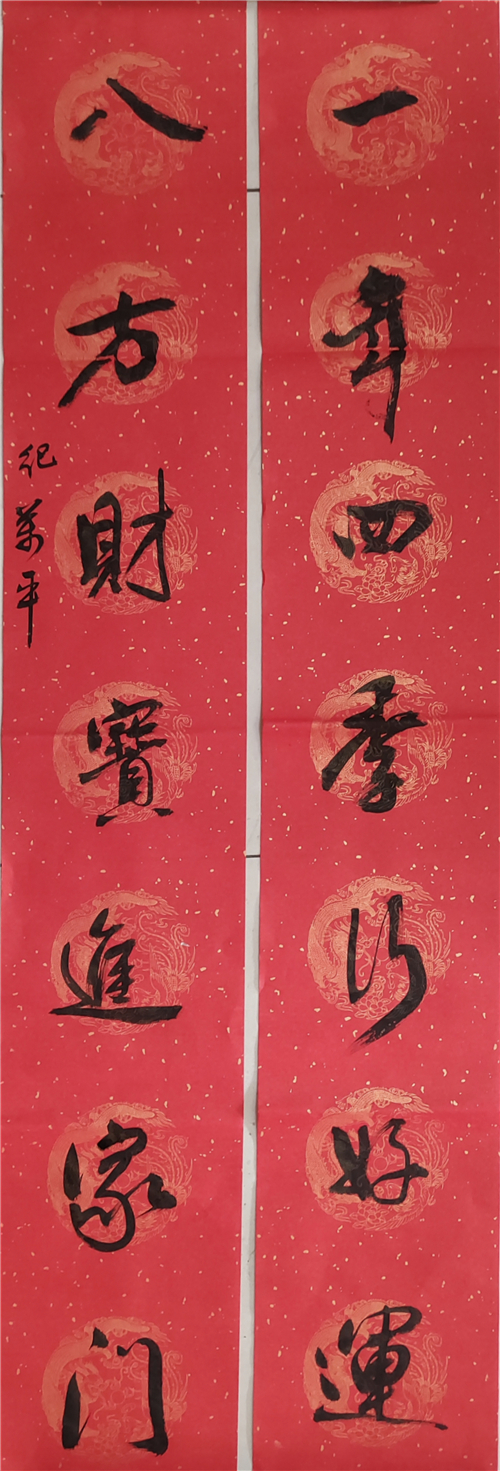 一年四季行好運
八方財寶進家门
纪萬平